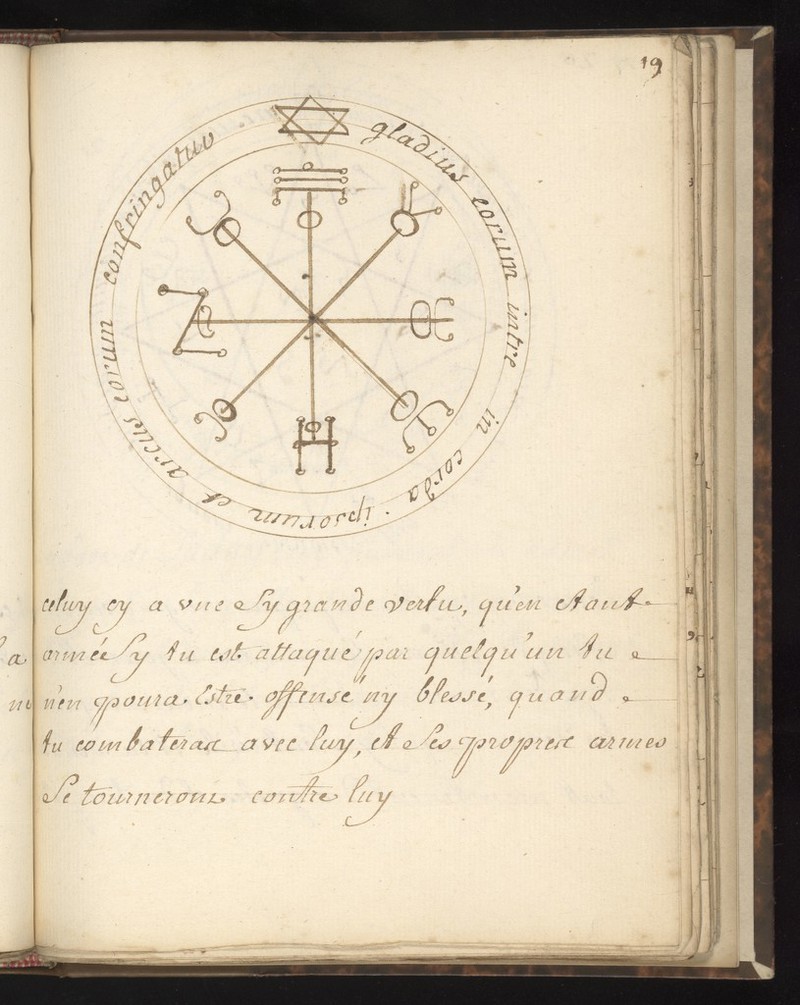 19
gladius eorum intre in corda ipsorum et arcus eorum confringatuv
celuy cy a vne Sy grande vertu, qu'en etant
a armée Sy tu est attaqué par quelqu'un tu
n'en poura Estre offensé ny blessé, quand
tu combateras avec luy, et Ses propres armes
Se tourneront contre luy